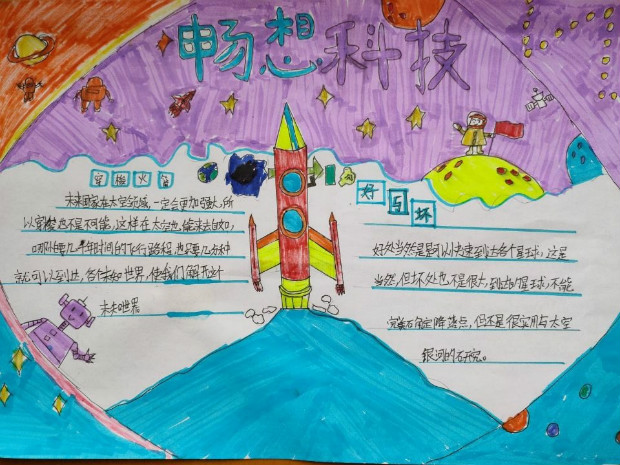 畅想科技
穿梭火箭
未来国家在太空领域,一定会更加强大,所
以穿梭也不是不可能,这样在太空也能来去自如,
哪怕要几千年时间的飞行路程,也只要几分钟
就可以到达,各个未知世界,使我们解开这个
未来世界
好与坏
好处当然是可以快速到达各个星球,这是
当然,但坏处也不是很大,到达的星球,不能
完美确定降落点,但还是很实用与太空
银河的研究。